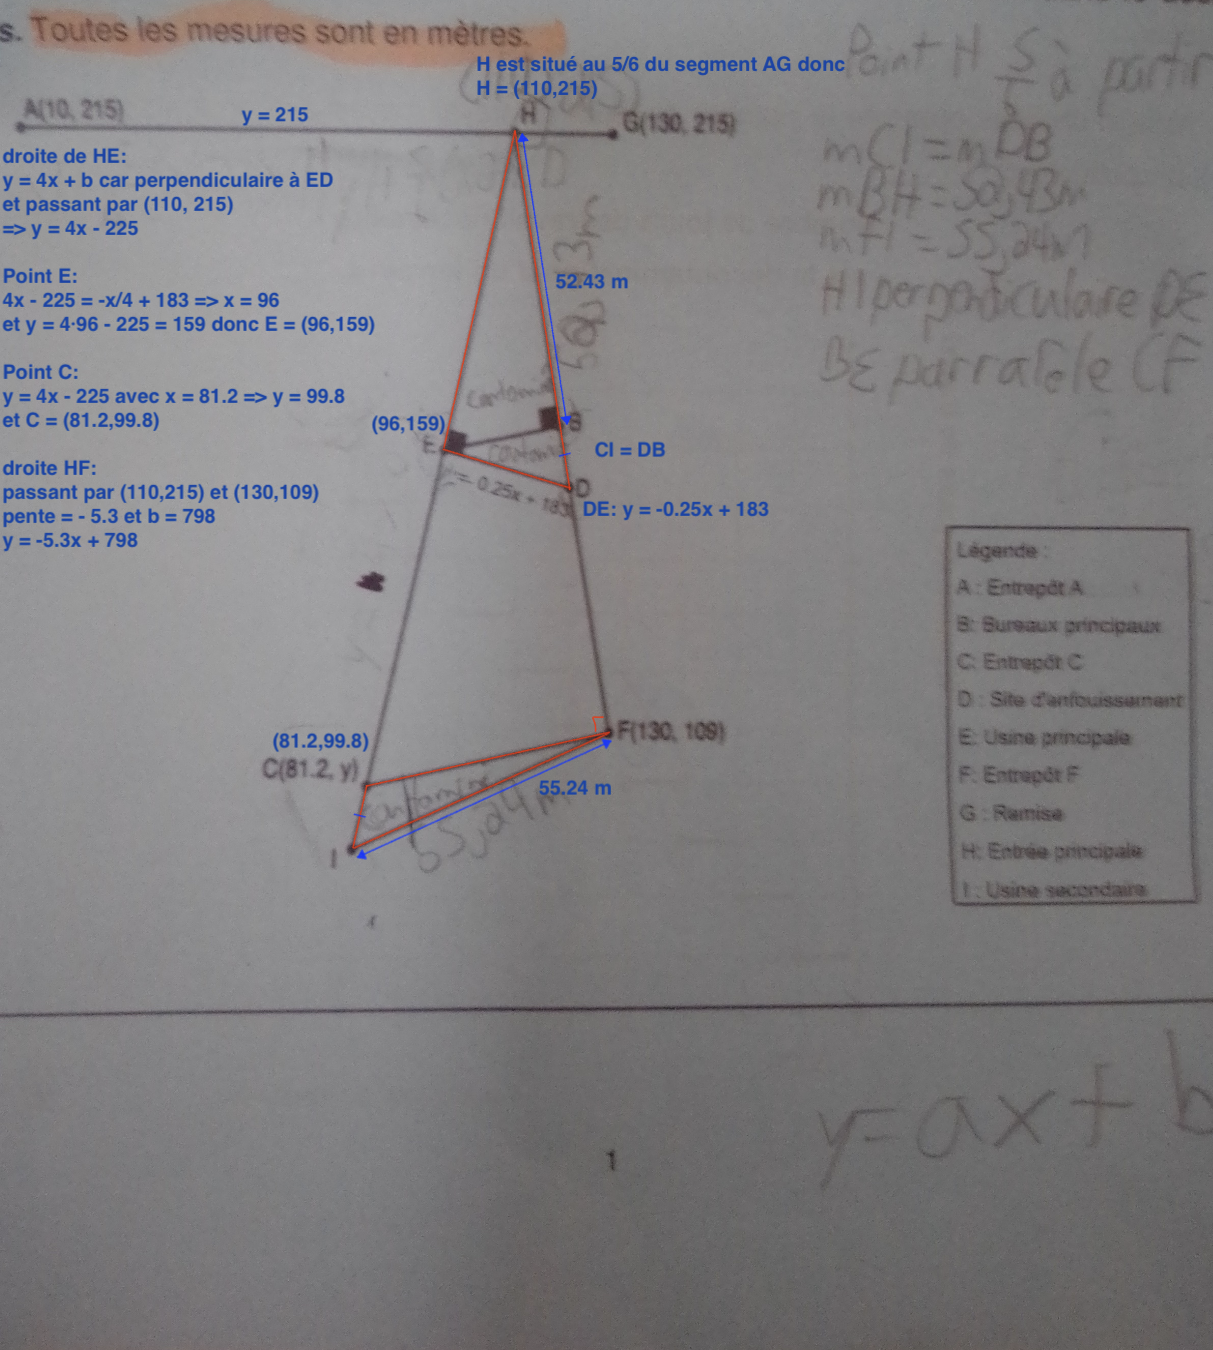 s. Toutes les mesures sont en mètres.
H est situé au 5/6 du segment AG donc
H = (110,215)
Point H 5/6 à partir
A(10, 215)
y = 215
H
G(130, 215)
droite de HE:
y = 4x + b car perpendiculaire à ED
et passant par (110, 215)
=> y = 4x - 225
mCI = mDB
mBH = 50,43m
mFI = 55,24m
HI perpendiculaire DE
BE parralèle CF
Point E:
4x - 225 = -x/4 + 183 => x = 96
et y = 4·96 - 225 = 159 donc E = (96,159)
52.43 m
Point C:
y = 4x - 225 avec x = 81.2 => y = 99.8
et C = (81.2,99.8)
(96,159)
E
B
CI = DB
droite HF:
passant par (110,215) et (130,109)
pente = - 5.3 et b = 798
y = -5.3x + 798
y = -0.25x + 183
D
DE: y = -0.25x + 183
Légende :
A : Entrepôt A
B: Bureaux principaux
C: Entrepôt C
D : Site d'enfouissement
E: Usine principale
F: Entrepôt F
G : Remise
H: Entrée principale
I : Usine secondaire
F(130, 109)
(81.2,99.8)
C(81.2, y)
55.24 m
55,24m
I
y = ax + b
1